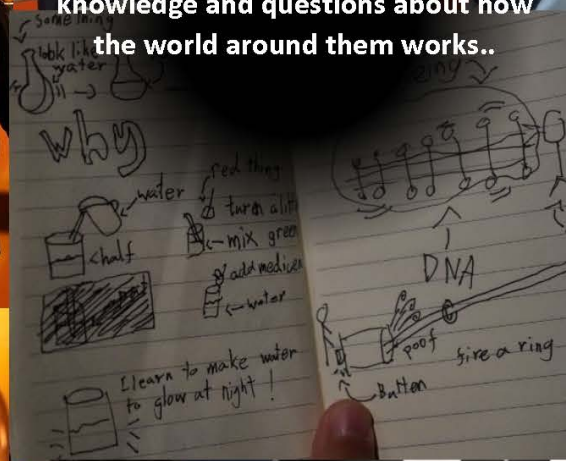 knowledge and questions about how
the world around them works..
something
look like
water
why
water
half
red thing
turn a
mix green
add
water
I learn to make water
to glow at night !
DNA
poof
fire a ring
Button